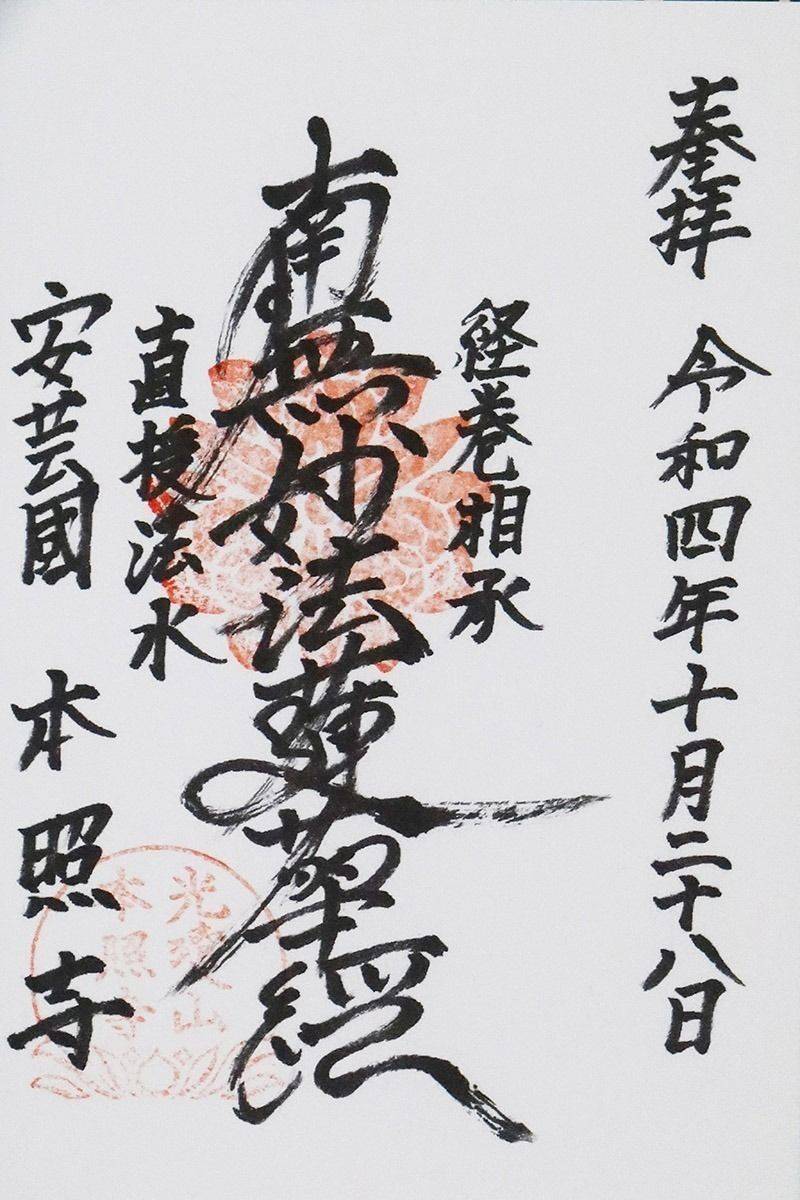 奉拝 令和四年十月二十八日
経巻相承
南無妙法蓮華経
直授法水
安芸國 本照寺
山
本照寺